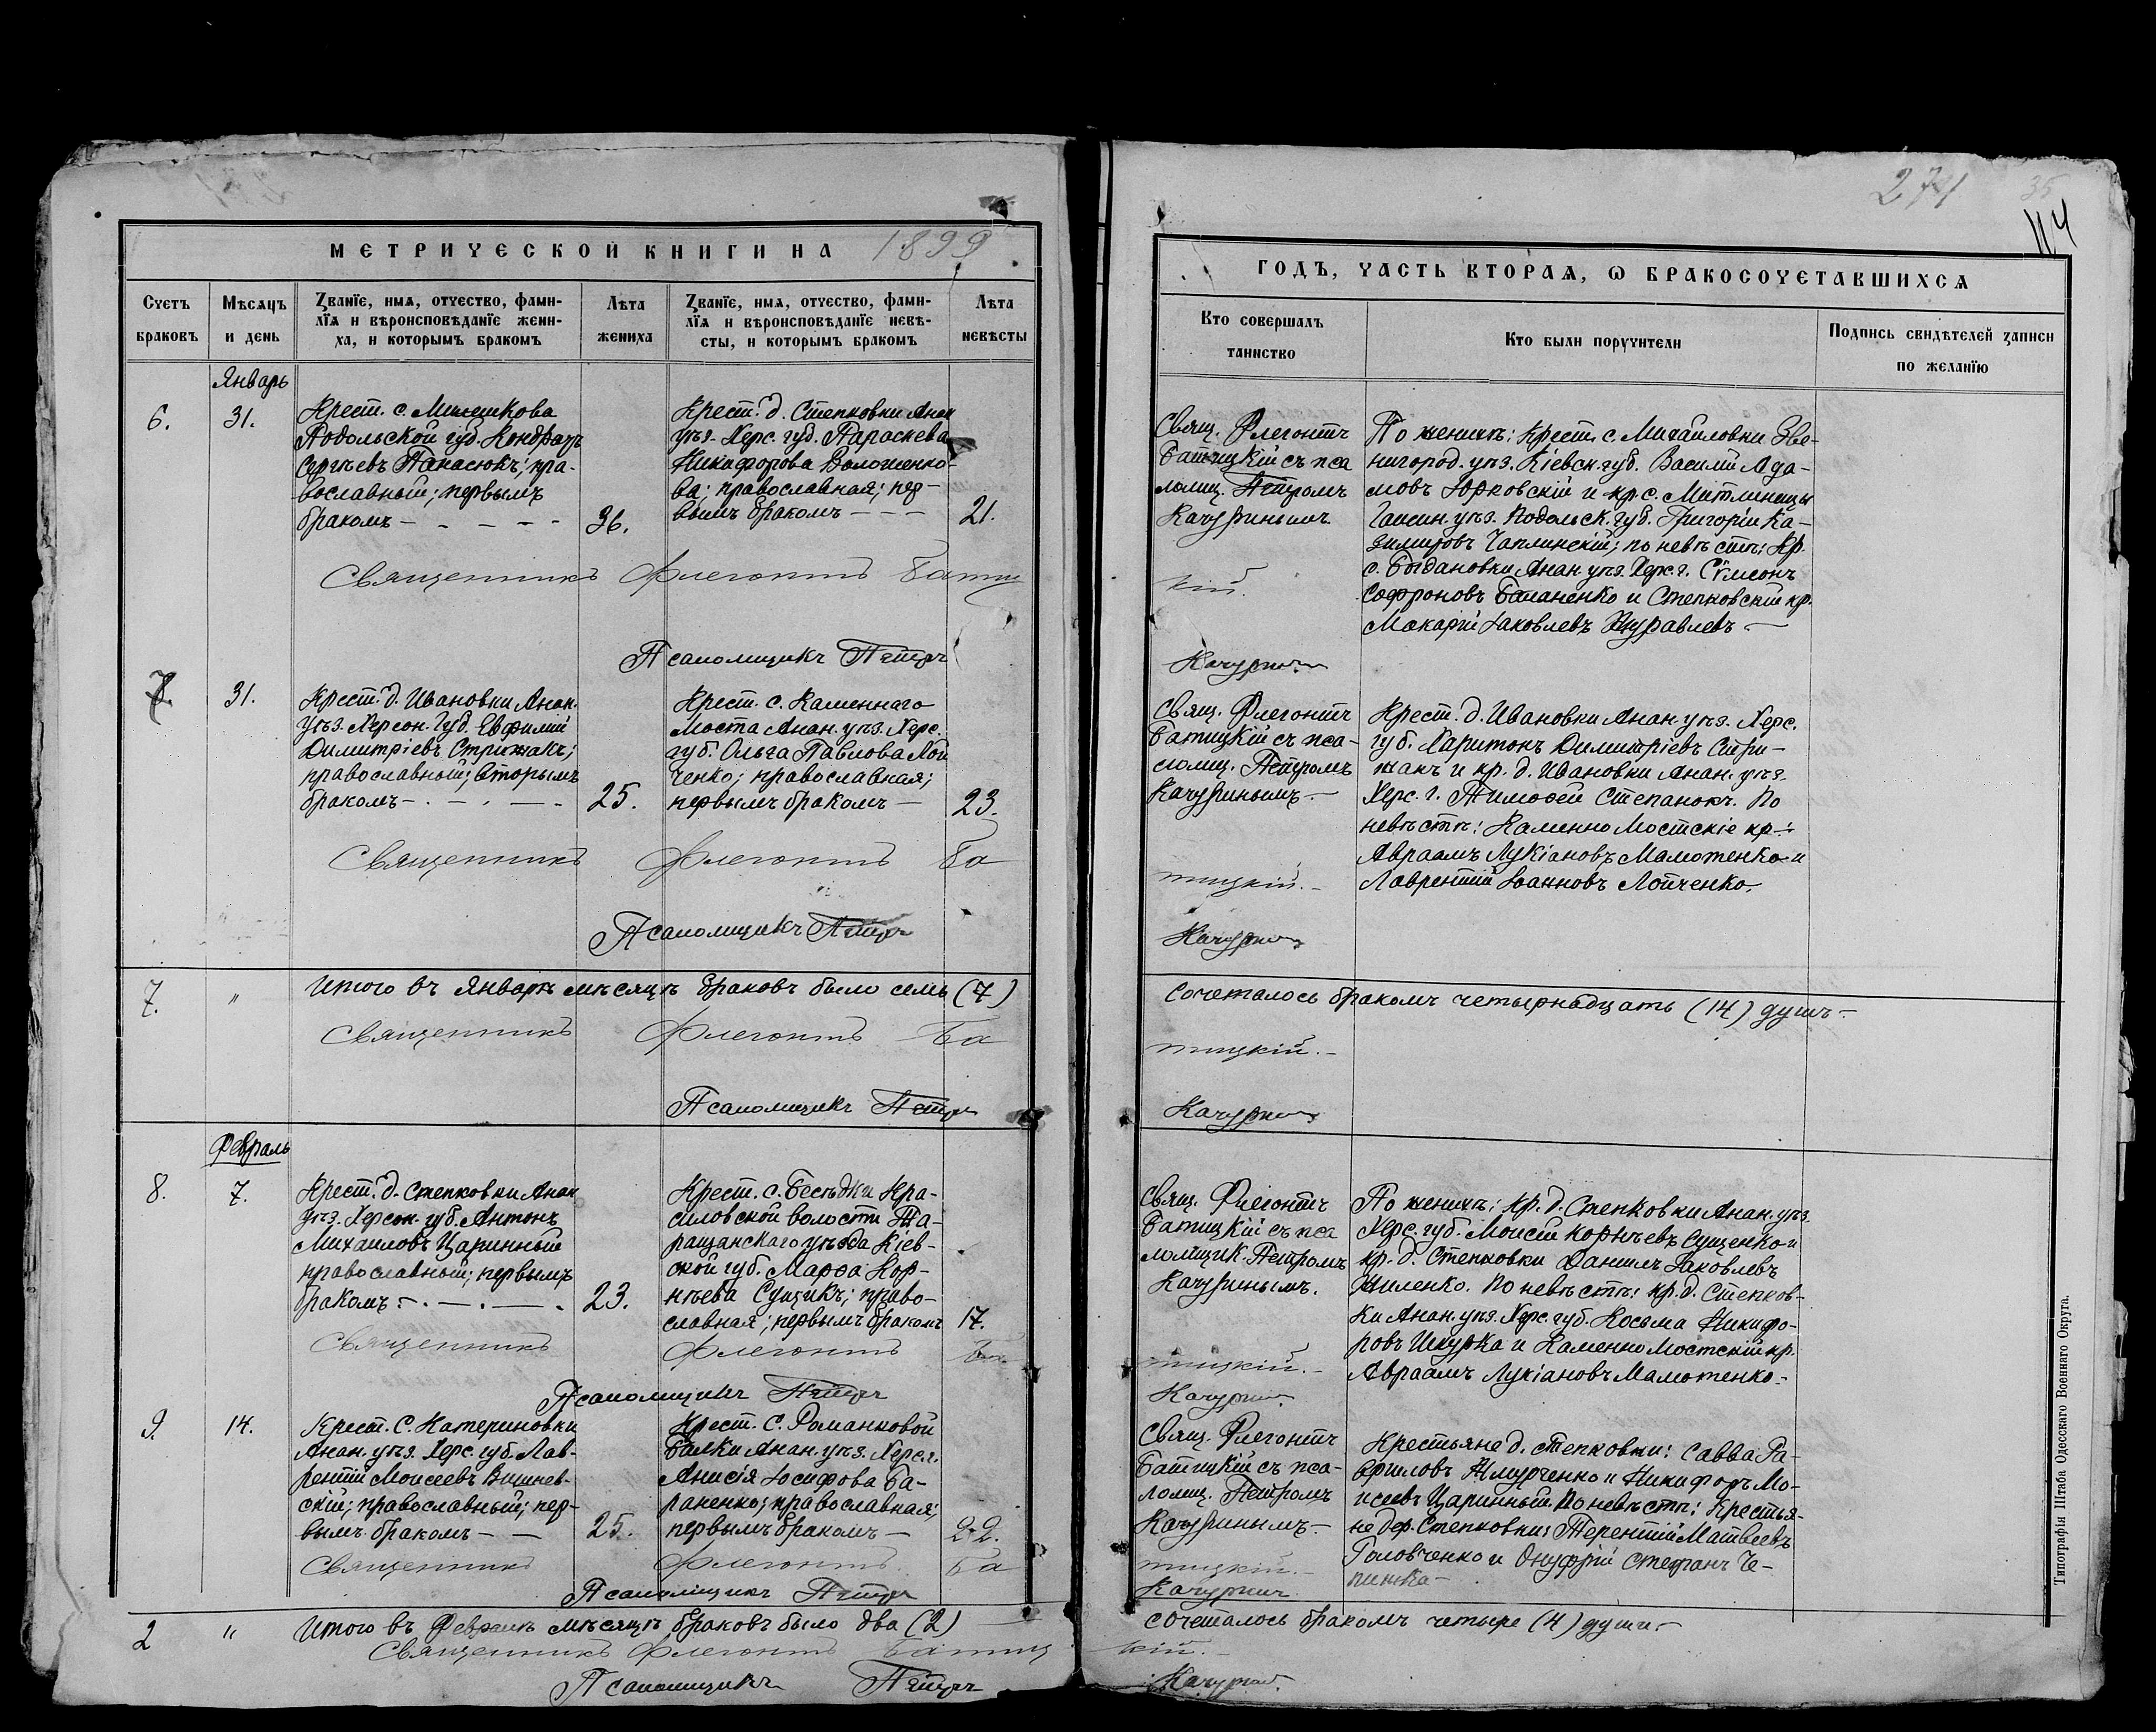 274
35
114
МЕТРИЧЕСКОЙ КНИГИ НА 1899
ГОДЪ, ЧАСТЬ ВТОРАѦ, Ѡ БРАКОСОЧЕТАВШИХСѦ
Счетъ
браковъ
Мѣсѧцъ
и день
Званїе, имѧ, отчество, фами-
лїѧ и вѣроисповѣданїе жени-
ха, и которымъ бракомъ
Лѣта
жениха
Званїе, имѧ, отчество, фами-
лїѧ и вѣроисповѣданїе невѣ-
сты, и которымъ бракомъ
Лѣта
невѣсты
Кто совершалъ
таинство
Кто были поручители
Подпись свидѣтелей записи
по желанїю
Январь
6.
31.
Крест. с. Мишкова
Подольской губ. Кондратъ
Сергѣевъ Панасюкъ; пра-
вославный; первымъ
бракомъ
36.
Крест. д. Степковки Анан
уѣз. Херс. губ. Параскева
Никифорова Волошенко-
ва; православная; пер-
вымъ бракомъ
21.
Свящ. Флегонтъ
Батицкій съ пса
ломщ. Петромъ
Качуринымъ.
По женихѣ: Крест. с. Михайловки Зве-
нигород. уѣз. Кіевск. губ. Василій Ада-
мовъ Юрковскій и кр. с. Митлинецы
Гайсин. уѣз. Подольск. губ. Григорій Ка-
зимировъ Чаплинскій; по невѣстѣ: Кр.
с. Богдановки Анан. уѣз. Херс. г. Сѵмеонъ
Софроновъ Баланенко и Степковскій кр.
Макарій Іаковлевъ Журавлевъ
Священникъ Флегонтъ Батиц
кій.
Псаломщикъ Петръ
Качуринъ
7.
31.
Крест. д. Ивановки Анан.
уѣз. Херсон. губ. Евфимій
Димитріевъ Стрижакъ;
православный; вторымъ
бракомъ
25.
Крест. с. Каменнаго
Моста Анан. уѣз. Херс.
губ. Ольга Павлова Лой
ченко; православная;
первымъ бракомъ
23.
Свящ. Флегонтъ
Батицкій съ пса-
ломщ. Петромъ
Качуринымъ.
Крест. д. Ивановки Анан. уѣз. Херс.
губ. Харитонъ Димитріевъ Стри-
жакъ и кр. д. Ивановки Анан. уѣз.
Херс. г. Тимофей Степанокъ. По
невѣстѣ: Каменно Мостскіе кр.:
Авраамъ Лукіановъ Маложенко и
Лаврентій Іоанновъ Лойченко.
Священникъ Флегонтъ Ба
тицкій.
Псаломщикъ Петръ
Качуринъ
7.
"
Итого въ Январѣ мѣсяцѣ браковъ было семь (7)
сочеталось бракомъ четырнадцать (14) душъ
Священникъ Флегонтъ Ба
тицкій.
Псаломщикъ Петръ
Качуринъ
Февраль
8.
7.
Крест. д. Степковки Анан
уѣз. Херсон. губ. Антонъ
Михаиловъ Царинный
православный; первымъ
бракомъ
23.
Крест. с. Бесѣдки Кра-
силовской волости Та-
ращанскаго уѣзда Кіев-
ской губ. Марѳа Кор-
нѣева Сущикъ; право-
славная; первымъ бракомъ
17.
Свящ. Флегонтъ
Батицкій съ пса
ломщик. Петромъ
Качуринымъ.
По женихѣ: кр. д. Степковки Анан. уѣз.
Херс. губ. Моисей Корнѣевъ Сущенко и
кр. д. Степковки Даниилъ Іаковлевъ
Жиленко. По невѣстѣ: кр. д. Степков-
ки Анан. уѣз. Херс. губ. Косьма Никифо-
ровъ Шкурка и Каменно Мостскій кр.
Авраамъ Лукіановъ Маложенко.
Священникъ Флегонтъ Ба
тицкій.
Псаломщикъ Петръ
Качуринъ
9.
14.
Крест. с. Катериновки
Анан. уѣз. Херс. губ. Лав-
рентій Моисеевъ Вишнев-
скій; православный; пер-
вымъ бракомъ
25.
Крест. с. Романковой
Балки Анан. уѣз. Херс. г.
Анисія Іосифова Ба-
раненко; православная;
первымъ бракомъ
22.
Свящ. Флегонтъ
Батицкій съ пса-
ломщ. Петромъ
Качуринымъ.
Крестьяне д. Степковки: Савва Га-
вриловъ Жмурченко и Никифоръ Мо-
исеевъ Царинный. По невѣстѣ: Крестья-
не дер. Степковки: Терентій Матвеевъ
Головченко и Онуфрій Стефанъ Че-
пижка
Священникъ Флегонтъ Ба
тицкій.
Псаломщикъ Петръ
Качуринъ
2
"
Итого въ Февралѣ мѣсяцѣ браковъ было два (2)
сочеталось бракомъ четыре (4) души.
Священникъ Флегонтъ Батиц
кій.
Псаломщикъ Петръ
Качуринъ.
Типографія Штаба Одесскаго Военнаго Округа.